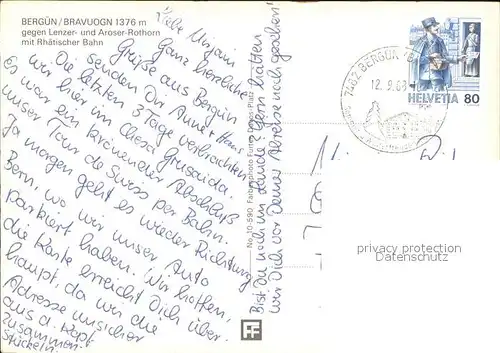 BERGÜN/BRAVUOGN 1376 m
gegen Lenzer- und Aroser-Rothorn
mit Rhätischer Bahn
Liebe Mirjam
Ganz herzliche
Grüsse aus Bergün
senden Dir Anne + Hans
Die letzten 3 Tage verbrachten
wir hier im Chesa Grusaida.
Es war ein krönender Abschluß
unser Tour de Suisse per Bahn.
Ja morgen geht es wieder Richtung
Bern, wo wir unser Auto
parkiert haben. Wir hoffen,
die Karte erreicht Dich über-
haupt, da wir die
Adresse unsicher
aus d. Kopf
zusammen-
stückeln.
Bist Du noch im Lande? Gern hätten
wir Dich vor Deiner Abreise noch gesehen!
No. 10-590 Fabrephoto Furter Davos Platz
FF
7482 BERGÜN
12.9.88
HELVETIA 80
privacy protection
Datenschutz